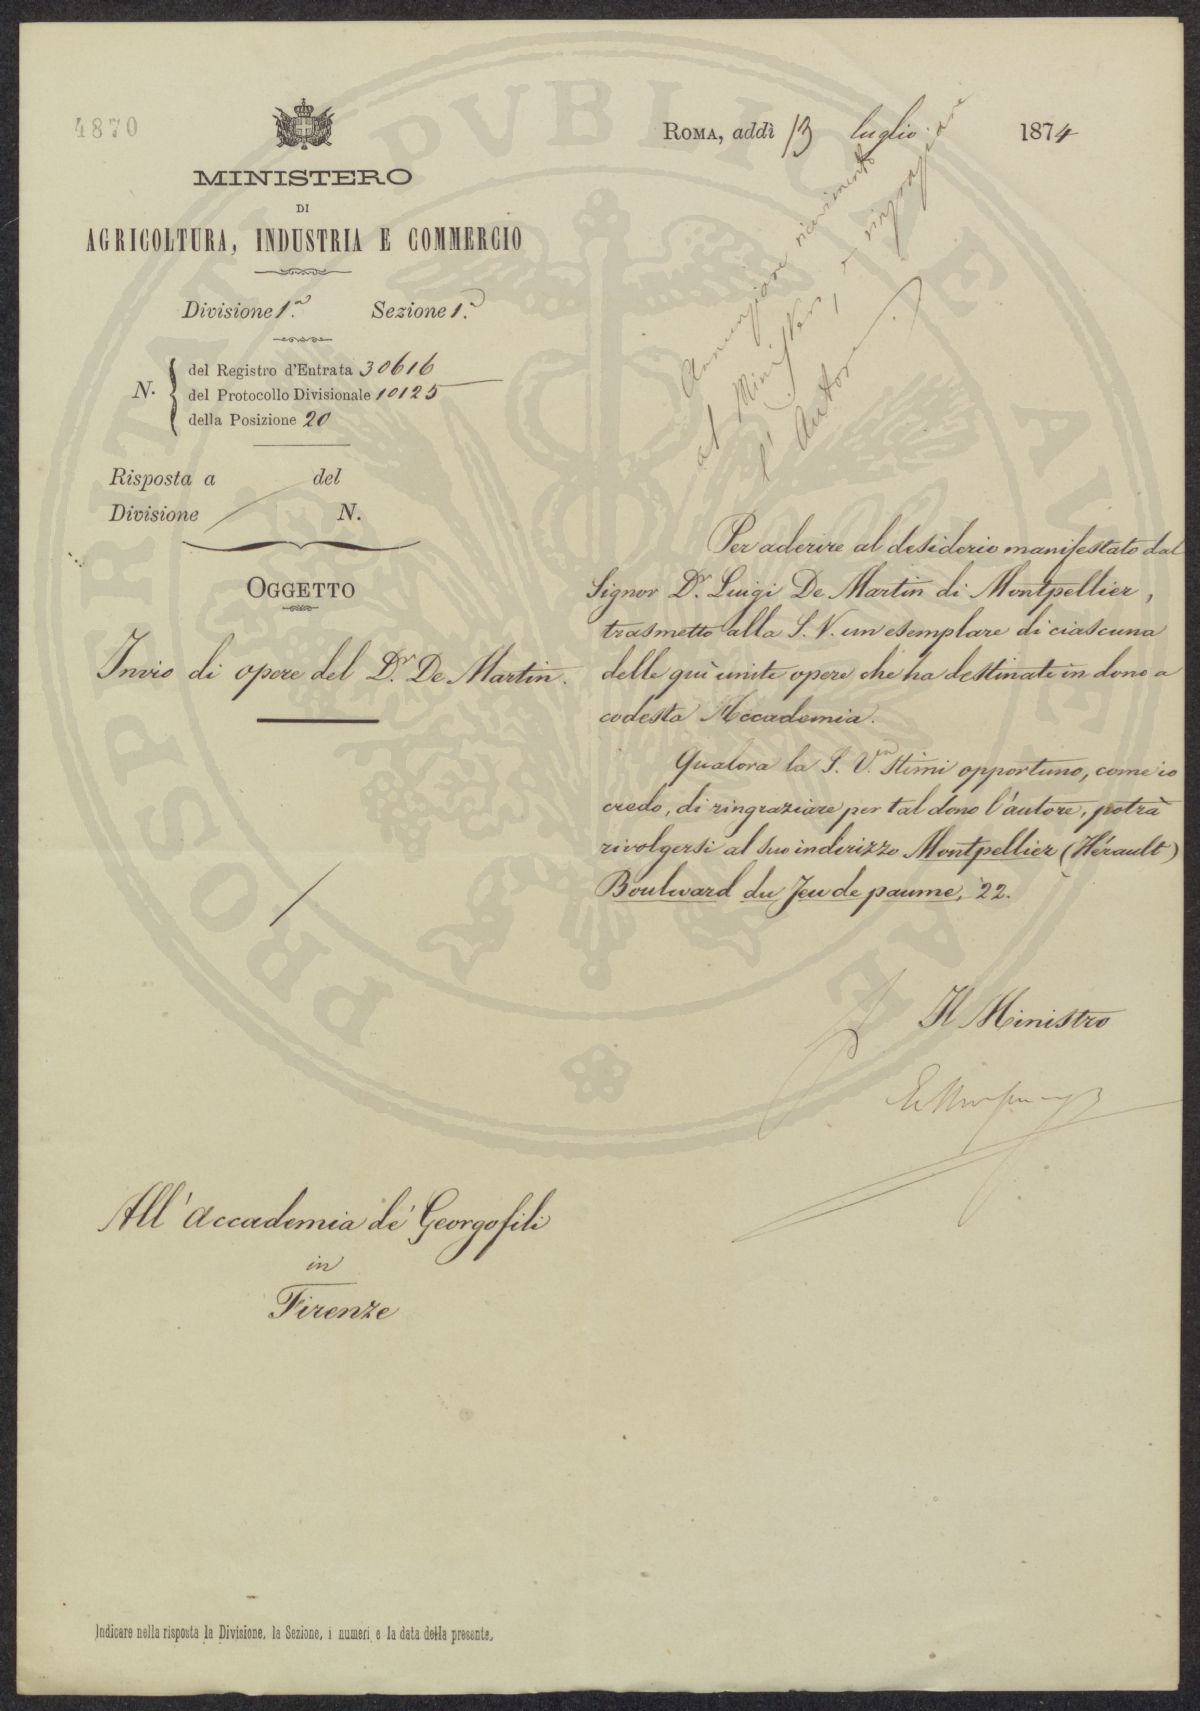 4870
MINISTERO
DI
AGRICOLTURA, INDUSTRIA E COMMERCIO
Divisione 1.ª Sezione 1.ª
N.
del Registro d'Entrata 30616
del Protocollo Divisionale 10125
della Posizione 20
Risposta a del
Divisione N.
OGGETTO
Invio di opere del Dr. De Martin.
ROMA, addì 13 luglio 1874
Annunziare ricevimento
al Ministero, e ringraziare
l'Autore.
Per aderire al desiderio manifestato dal
Signor Dr. Luigi De Martin di Montpellier,
trasmetto alla S. V. un esemplare di ciascuna
delle quì unite opere che ha destinate in dono a
codesta Accademia.
Qualora la S. V. stimi opportuno, come io
credo, di ringraziare per tal dono l'autore, potrà
rivolgersi al suo indirizzo Montpellier (Hérault)
Boulevard du Jeu de paume, 22.
Il Ministro
All'Accademia de' Georgofili
in
Firenze
Indicare nella risposta la Divisione, la Sezione, i numeri e la data della presente.
PROSPERITATI PVBLICAE AVGENDAE